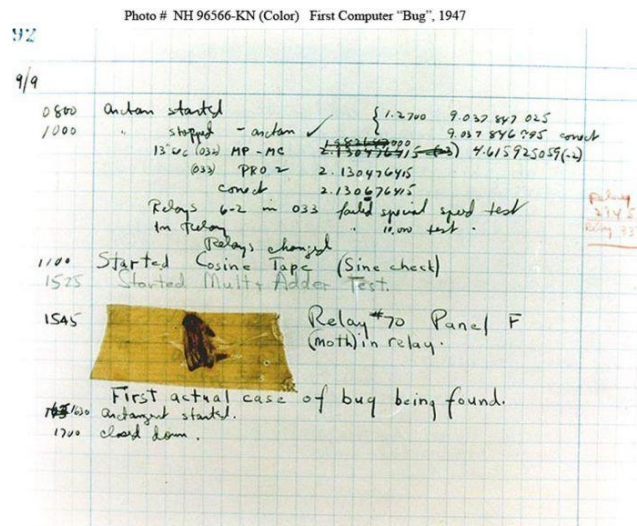 Photo # NH 96566-KN (Color) First Computer “Bug”, 1947
92
9/9
0800 antan started
1000 " stopped - antan ✓ { 1.2700 9.037 847 025
9.037 846 795 conect
13"uc (032) MP - MC 2.130476415 4.615925059(-2)
(033) PRO 2 2.130476415
conect 2.130676415
Relays 6-2 in 033 failed special speed test
In Relay " 10,000 test.
Relays changed
Relay
Relay 33
1100 Started Cosine Tape (Sine check)
1525 Started Mult + Adder Test.
1545 Relay #70 Panel F
(moth) in relay.
First actual case of bug being found.
1630 antangent started.
1700 closed down.